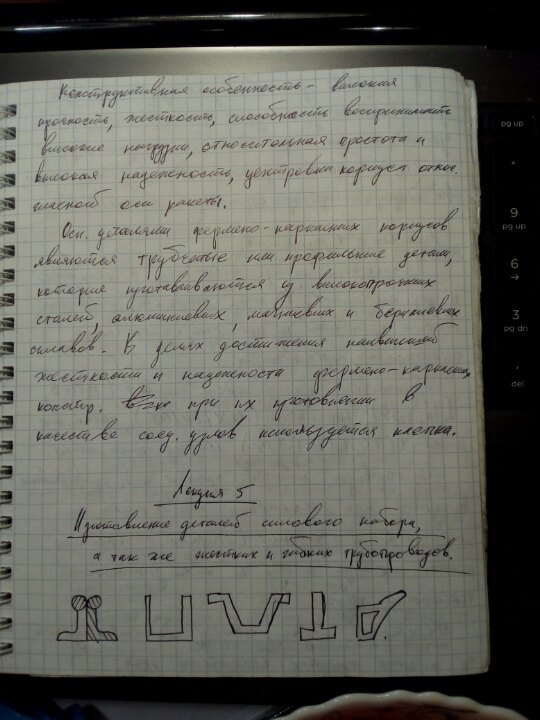 Конструктивная особенность - высокая
прочность, жесткость, способность воспринимать
высокие нагрузки, относительная простота и
высокая надежность, центровки корпуса относ.
осей ракеты.
Осн. деталями фермено-каркасных корпусов
являются трубчатые или профильные детали,
которые изготавливаются из высокопрочных
сталей, алюминиевых, магниевых и бериллиевых
сплавов. В целях достижения наивысшей
жесткости и надежности фермено-каркасных
при их изготовлении в
качестве соед. узлов используется клепка.
Лекция 5
Изготовление деталей силового набора,
а так же жестких и гибких трубопроводов.
pg up
9
pg up
6
→
3
pg dn
.
del